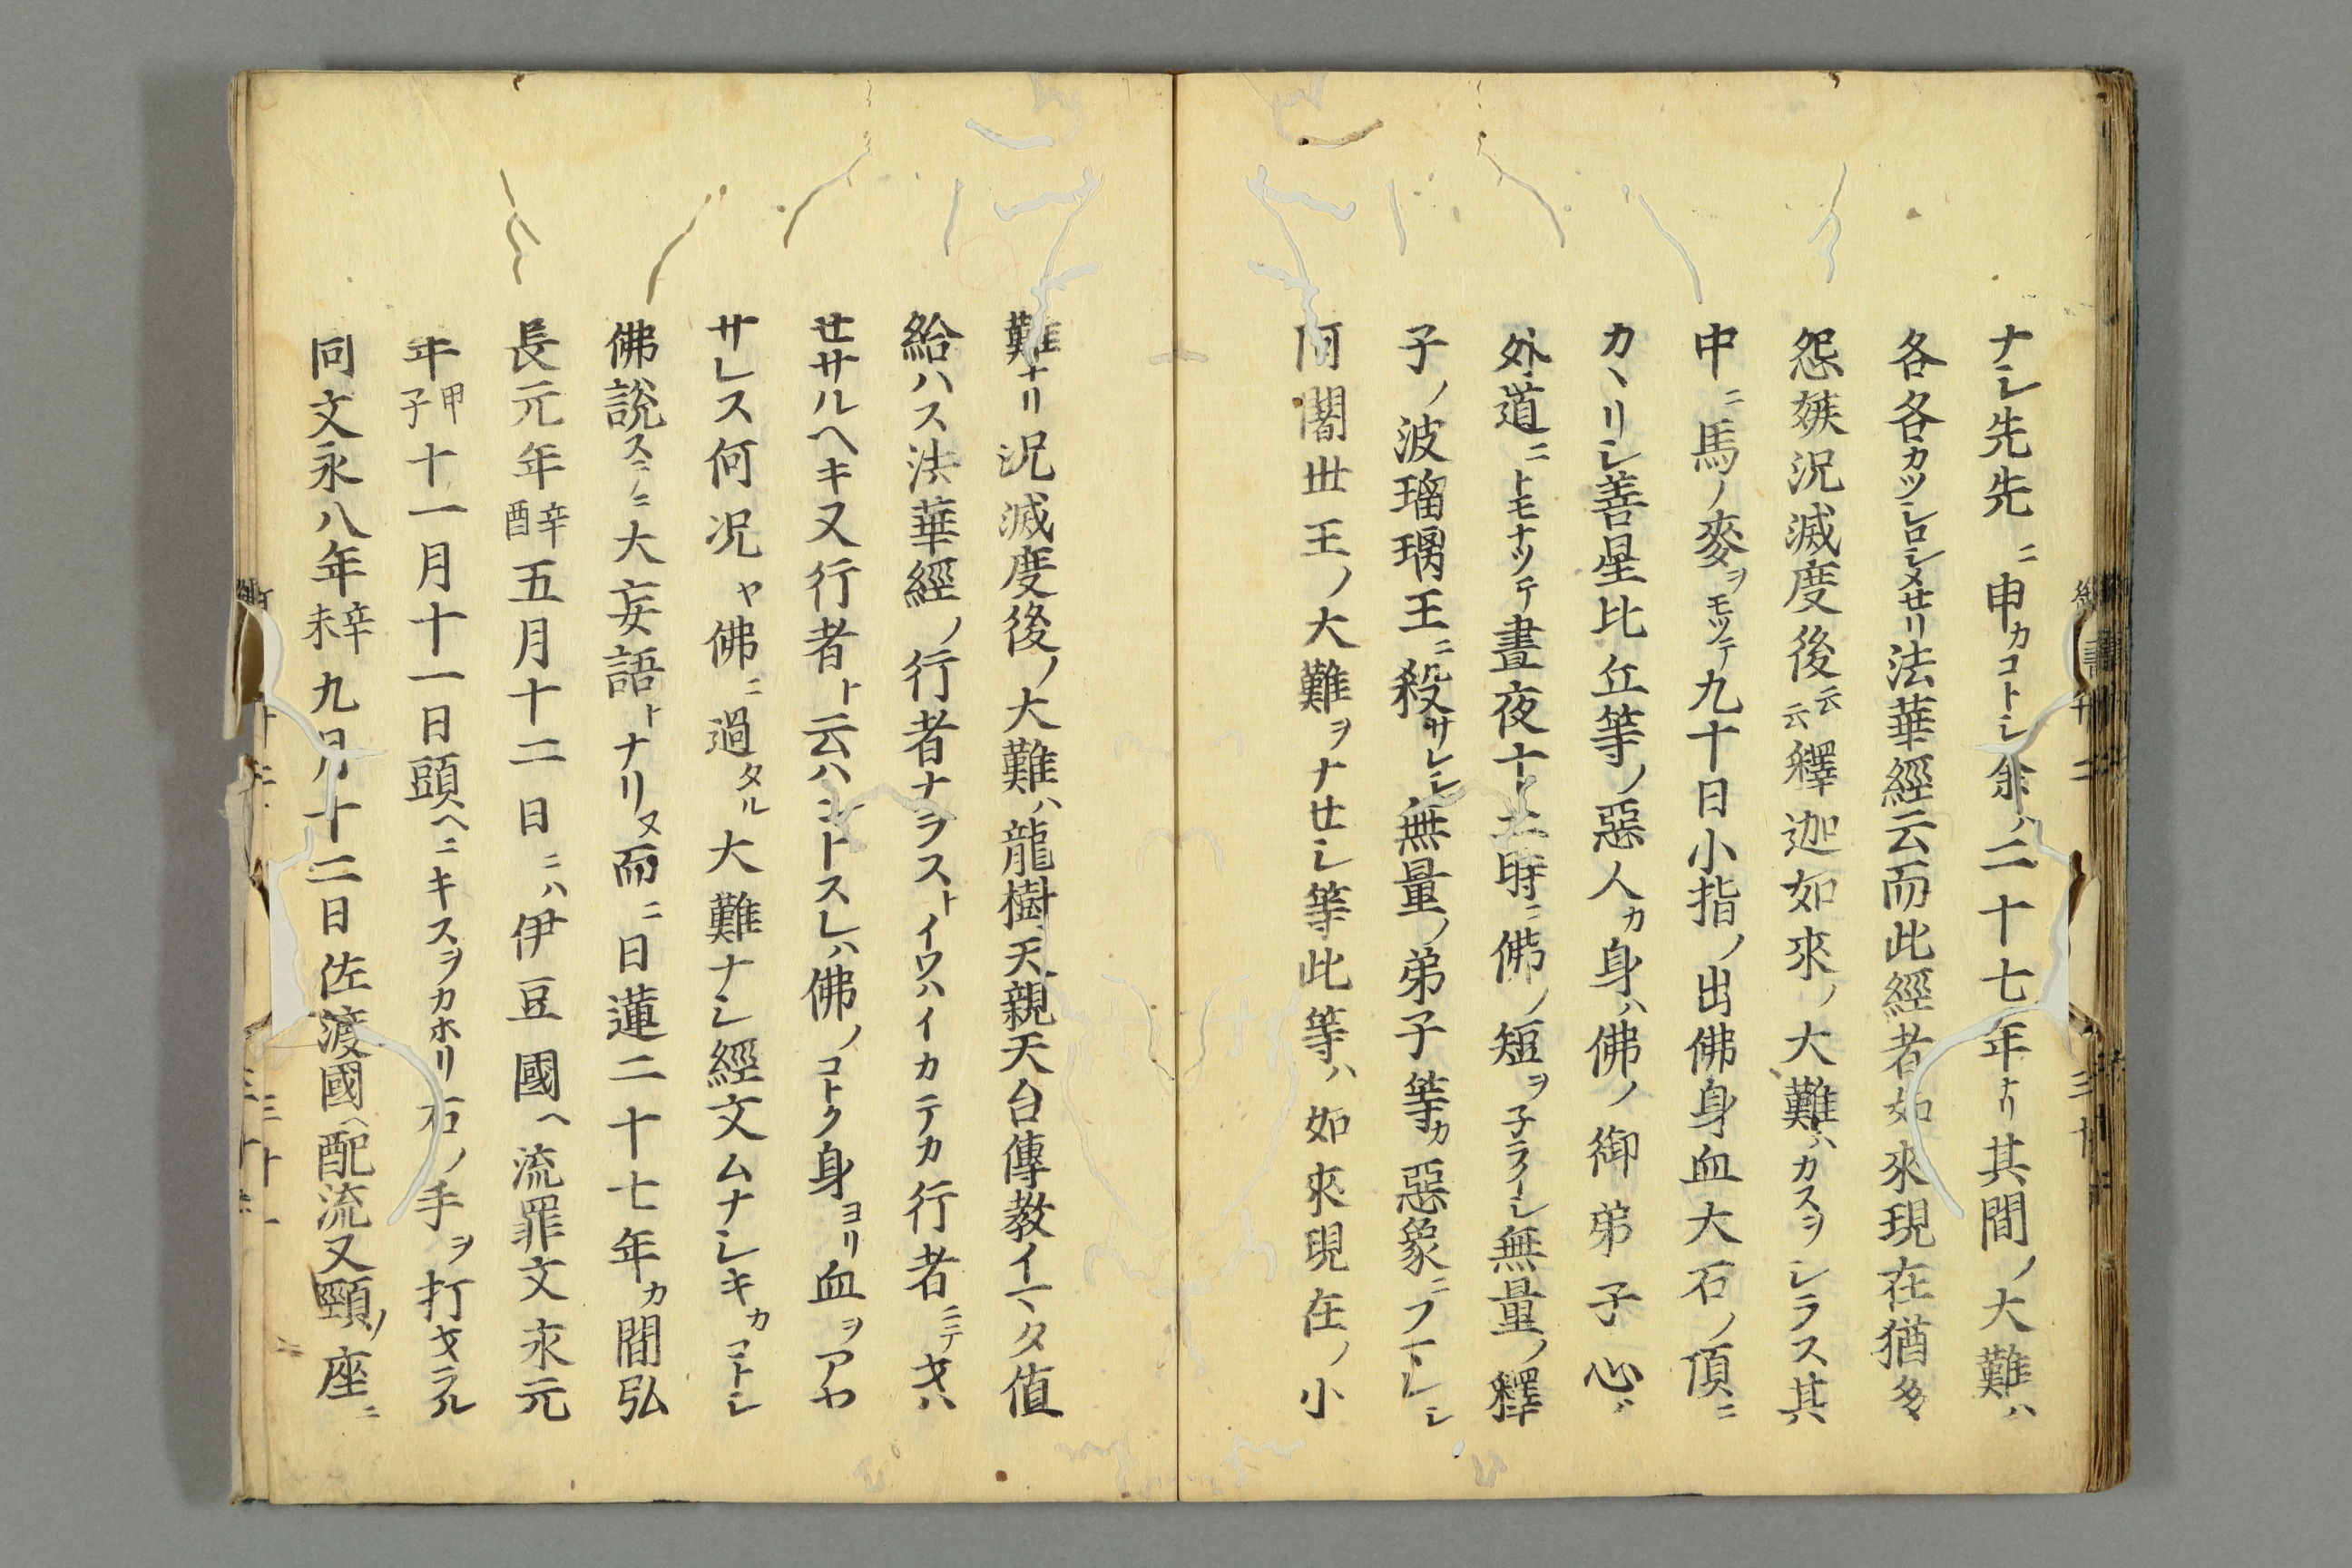 ナシ先先ニ申カコトシ余ハ二十七年ナリ其間ノ大難ハ
各各カツシロシメセリ法華經云而此經者如來現在猶多
怨嫉況滅度後云云釋迦如來ノ大難ハカスヲシラス其
中ニ馬ノ麥ヲモツテ九十日小指ノ出佛身血大石ノ頂ニ
カヽリシ善星比丘等ノ惡人カ身ハ佛ノ御弟子心ハ
外道ニトモナツテ晝夜十二時ニ佛ノ短ヲ子ラヰシ無量ノ釋
子ノ波瑠璃王ニ殺サレシ無量ノ弟子等カ惡象ニフマレシ
阿闍世王ノ大難ヲナセシ等此等ハ如來現在ノ小
難ナリ況滅度後ノ大難ハ龍樹天親天台傳教イマタ値
給ハス法華經ノ行者ナラストイワハイカテカ行者ニテヲハ
セサルヘキ又行者ト云ハントスレハ佛ノコトク身ヨリ血ヲアヤ
サレス何況ヤ佛ニ過タル大難ナシ經文ムナシキカコトシ
佛說ステニ大妄語トナリヌ而ニ日蓮二十七年カ間弘
長元年辛酉五月十二日ニハ伊豆國ヘ流罪文永元
年甲子十一月十一日頭ヘニキスヲカホリ右ノ手ヲ打ヲラル
同文永八年辛未九月十二日佐渡國ヘ配流又頸ノ座ニ